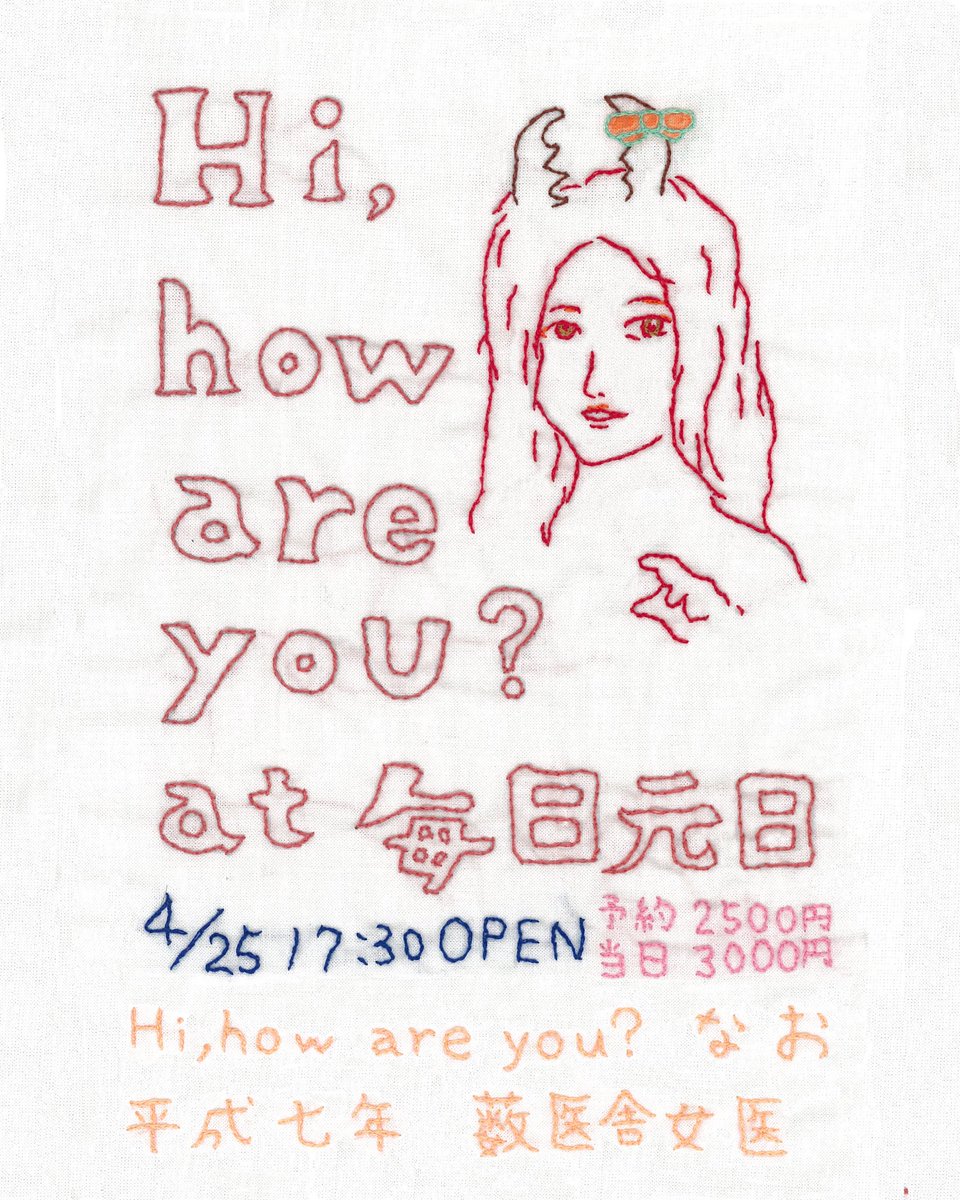 Hi,
how
are
you?
at 毎日元日
4/25 17:30 OPEN
予約 2500円
当日 3000円
Hi,how are you? なお
平成七年 薮医舎女医